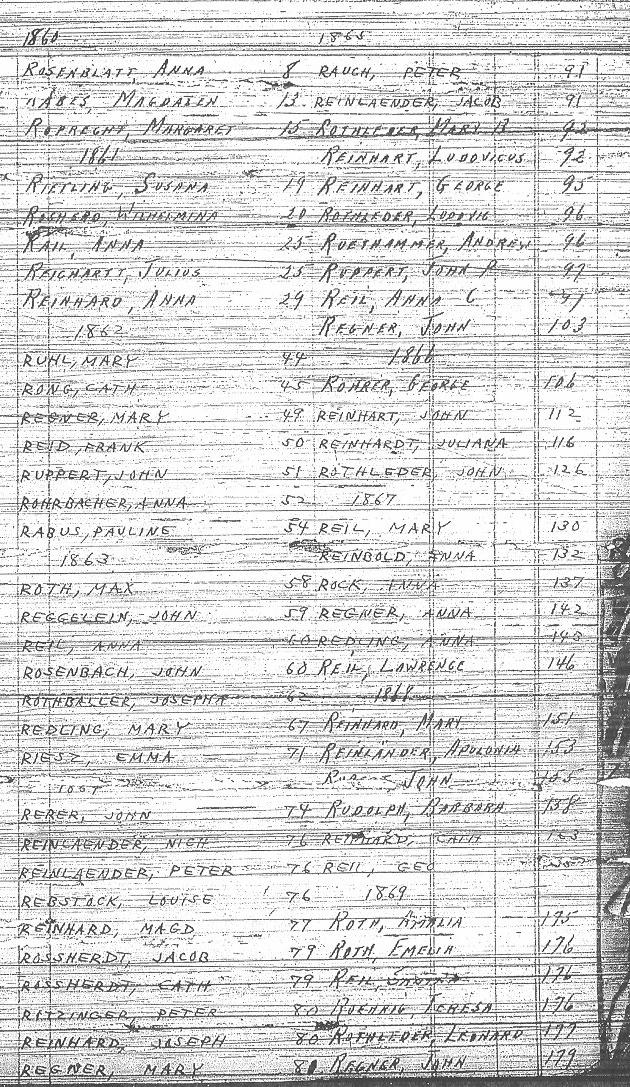 1860
ROSENBLATT, ANNA 8
RABES, MAGDALEN 13
RUPRECHT, MARGARET 15
1861
RIETLING, SUSANA 19
WILHELMINA 20
RAIL, ANNA 25
REICHARTT, JULIUS 25
REINHARD, ANNA 29
1862
RUHL, MARY 44
RONG, CATH 45
REGNER, MARY 49
REID, FRANK 50
RUPPERT, JOHN 51
ROHRBACHER, ANNA 52
RABUS, PAULINE 54
1863
ROTH, MAX 58
REGGELEIN, JOHN 59
REIL, ANNA 60
ROSENBACH, JOHN 60
ROTHBALLER, JOSEPHA 62
REDLING, MARY 67
RIESZ, EMMA 71
RERER, JOHN 74
REINLAENDER, NICH 76
REINLAENDER, PETER 76
REBSTOCK, LOUISE 76
REINHARD, MAGD 77
ROSSHERDT, JACOB 79
ROSSHERDT, CATH 79
RITZINGER, PETER 80
REINHARD, JOSEPH 80
REGNER, MARY 81
1865
RAUCH, PETER 91
REINLAENDER, JACOB 91
ROTHLEDER, MARY B 92
REINHART, LUDOVICUS 92
REINHART, GEORGE 95
ROTHLEDER, LUDOVIG 96
RUETHAMMER, ANDREW 96
RUPPERT, JOHN P 97
REIL, ANNA C
REGNER, JOHN 103
1866
ROHRER, GEORGE 106
REINHART, JOHN 112
REINHARDT, JULIANA 116
ROTHLEDER, JOHN 126
1867
REIL, MARY 130
REINBOLD, ANNA 132
ROCK, ANNA 137
REGNER, ANNA 142
REDLING, ANNA 143
REIL, LAWRENCE 146
1868
REINHARD, MARY 151
REINLANDER, APOLONIA 153
JOHN 155
RUDOLPH, BARBARA 158
REINHARD, CATH 163
REIL, GEO
1869
ROTH, AMALIA 175
ROTH, EMELIA 176
REIL, 176
TERESA 176
ROTHLEDER, LEONARD 177
REGNER, JOHN 179